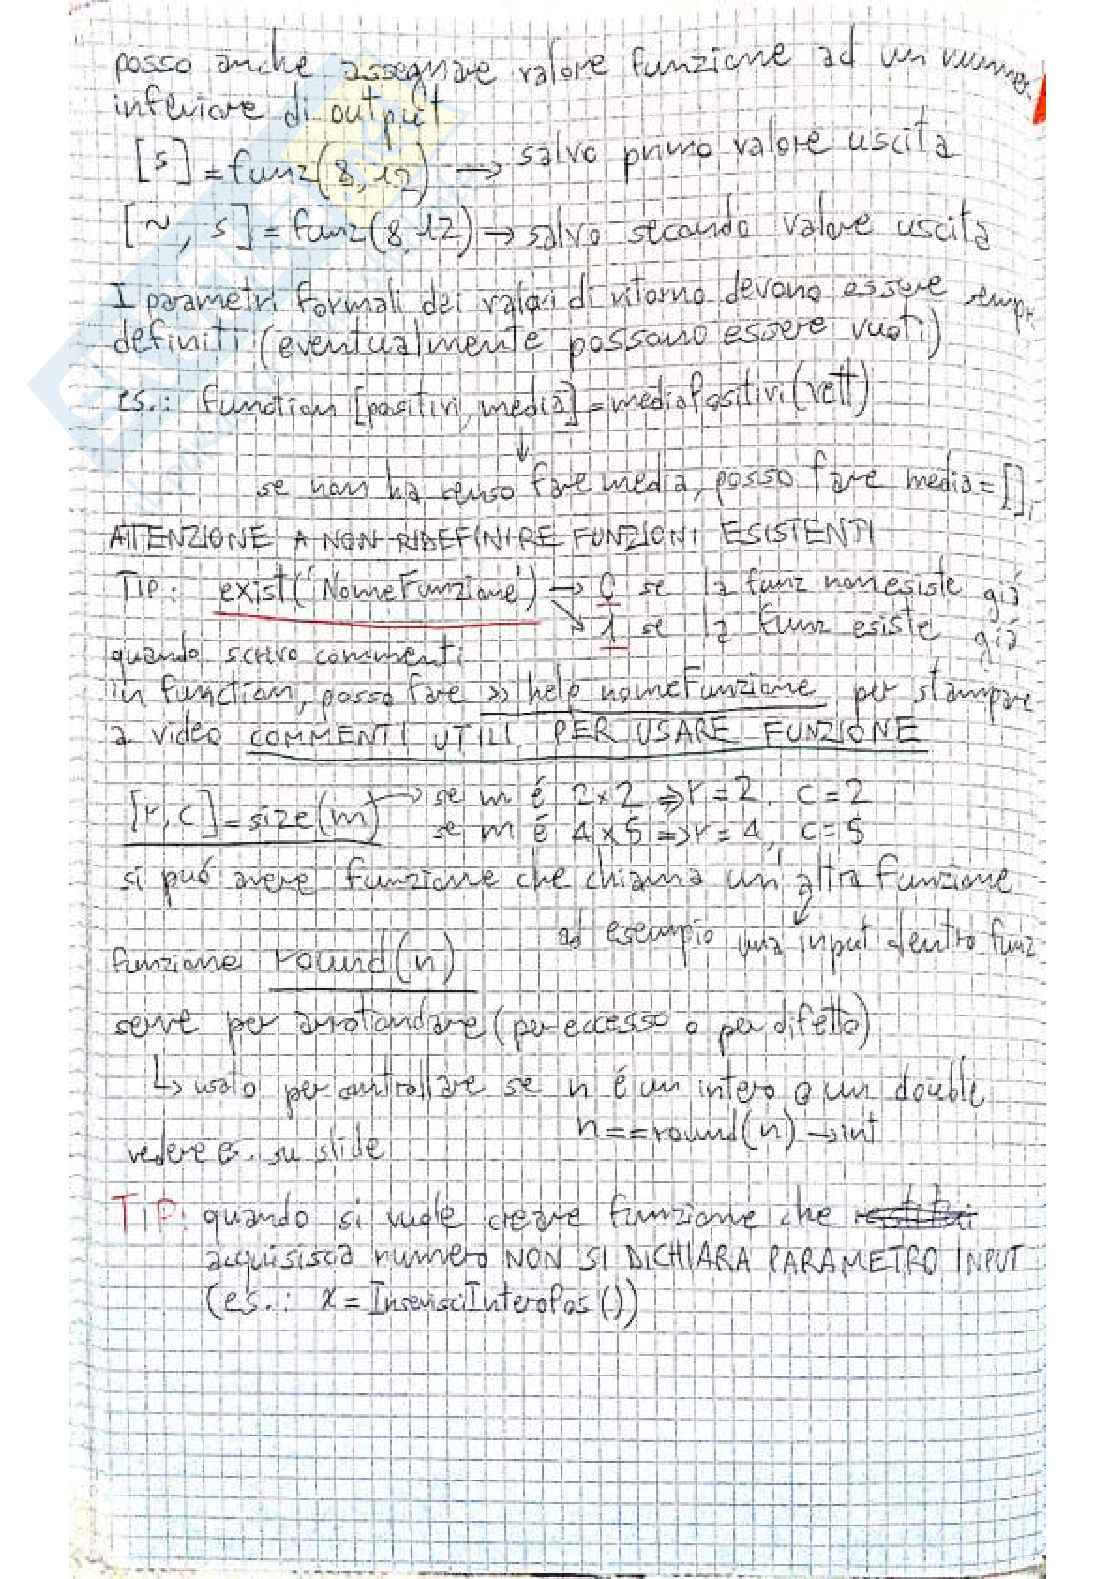 posso anche assegnare valore funzione ad un numer.
inferiore di output
[s] = funz(8,12) → salvo primo valore uscita
[~, s] = funz(8,12) → salvo secondo valore uscita
I parametri formali dei valori di ritorno devono essere sempr.
definiti (eventualmente possono essere vuoti)
es.: function [positivi, media] = mediaPositivi(vett)
↓
se non ha senso fare media, posso fare media = [];
ATTENZIONE A NON RIDEFINIRE FUNZIONI ESISTENTI
TIP: exist('NomeFunzione') → 0 se la funz non esiste già
↘ 1 se la funz esiste già
quando scrivo commenti
in function, posso fare >> help nomeFunzione per stampare
a video COMMENTI UTILI PER USARE FUNZIONE
[r,c] = size(m) → se m é 2x2 ⇒ r = 2, c = 2
se m é 4x5 ⇒ r = 4, c = 5
si puó avere funzione che chiama un'altra funzione
ad esempio una input dentro funz
funzione round(n)
serve per arrotondare (per eccesso o per difetto)
↳ usato per controllare se n é un intero o un double
n == round(n) → int
vedere es. su slide
TIP: quando si vuole creare funzione che
acquisisca numero NON SI DICHIARA PARAMETRO INPUT
(es.: x = InserisciInteroPos())